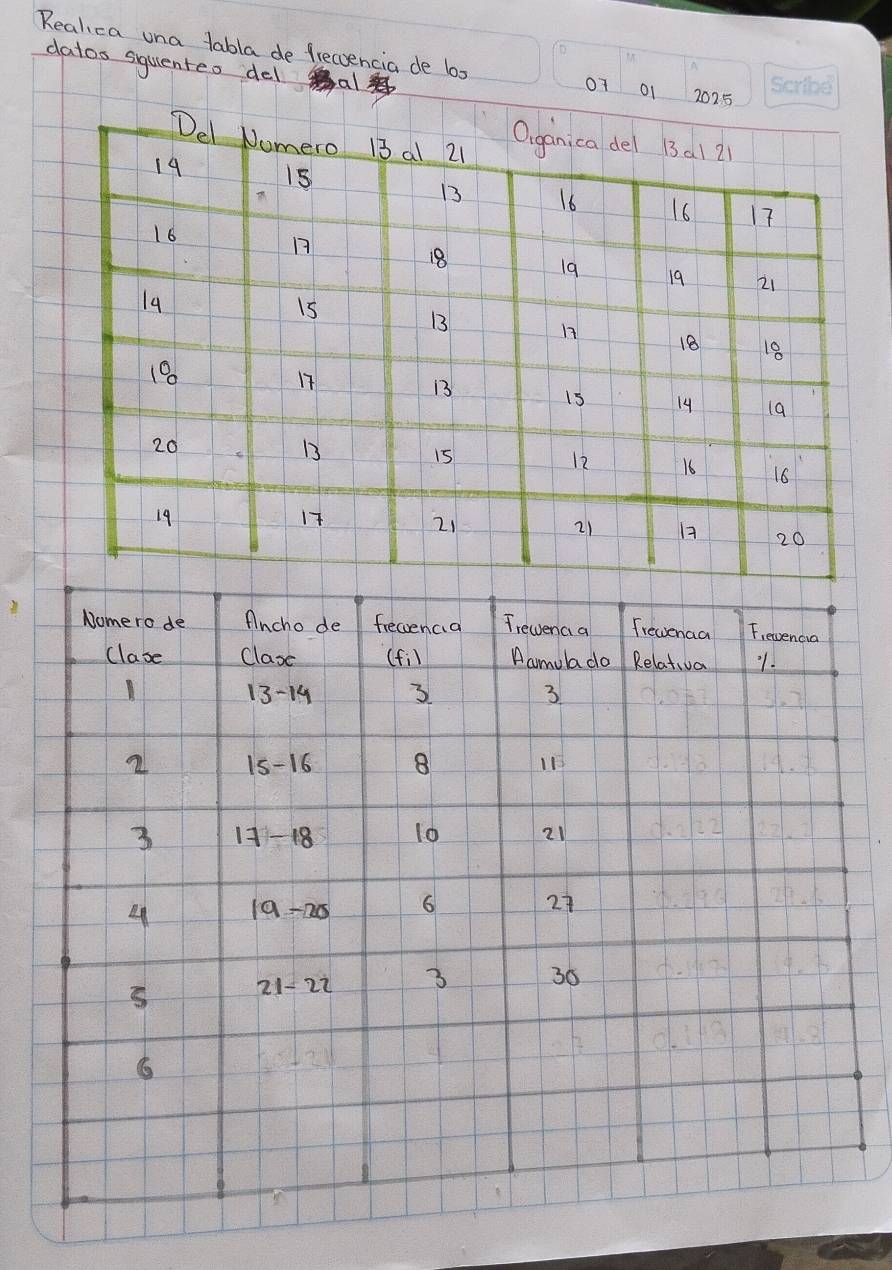 Realica una tabla de frecuencia de los
datos siguientes del al
07 01 2025
Scribe
Del Numero 13 al 21
Organica del 13 al 21
14 15 13 16 16 17
16 17 18 19 19 21
14 15 13 17 18 18
18 17 13 15 14 19
20 13 15 12 16 16
19 17 21 21 17 20
Numero de Ancho de frecuencia Frecuencia Frecuencia Frecuencia
Clase Clase (fi) Acumulado Relativa %.
1 13-14 3 3
2 15-16 8 11
3 17-18 10 21
4 19-20 6 27
5 21-22 3 30
6